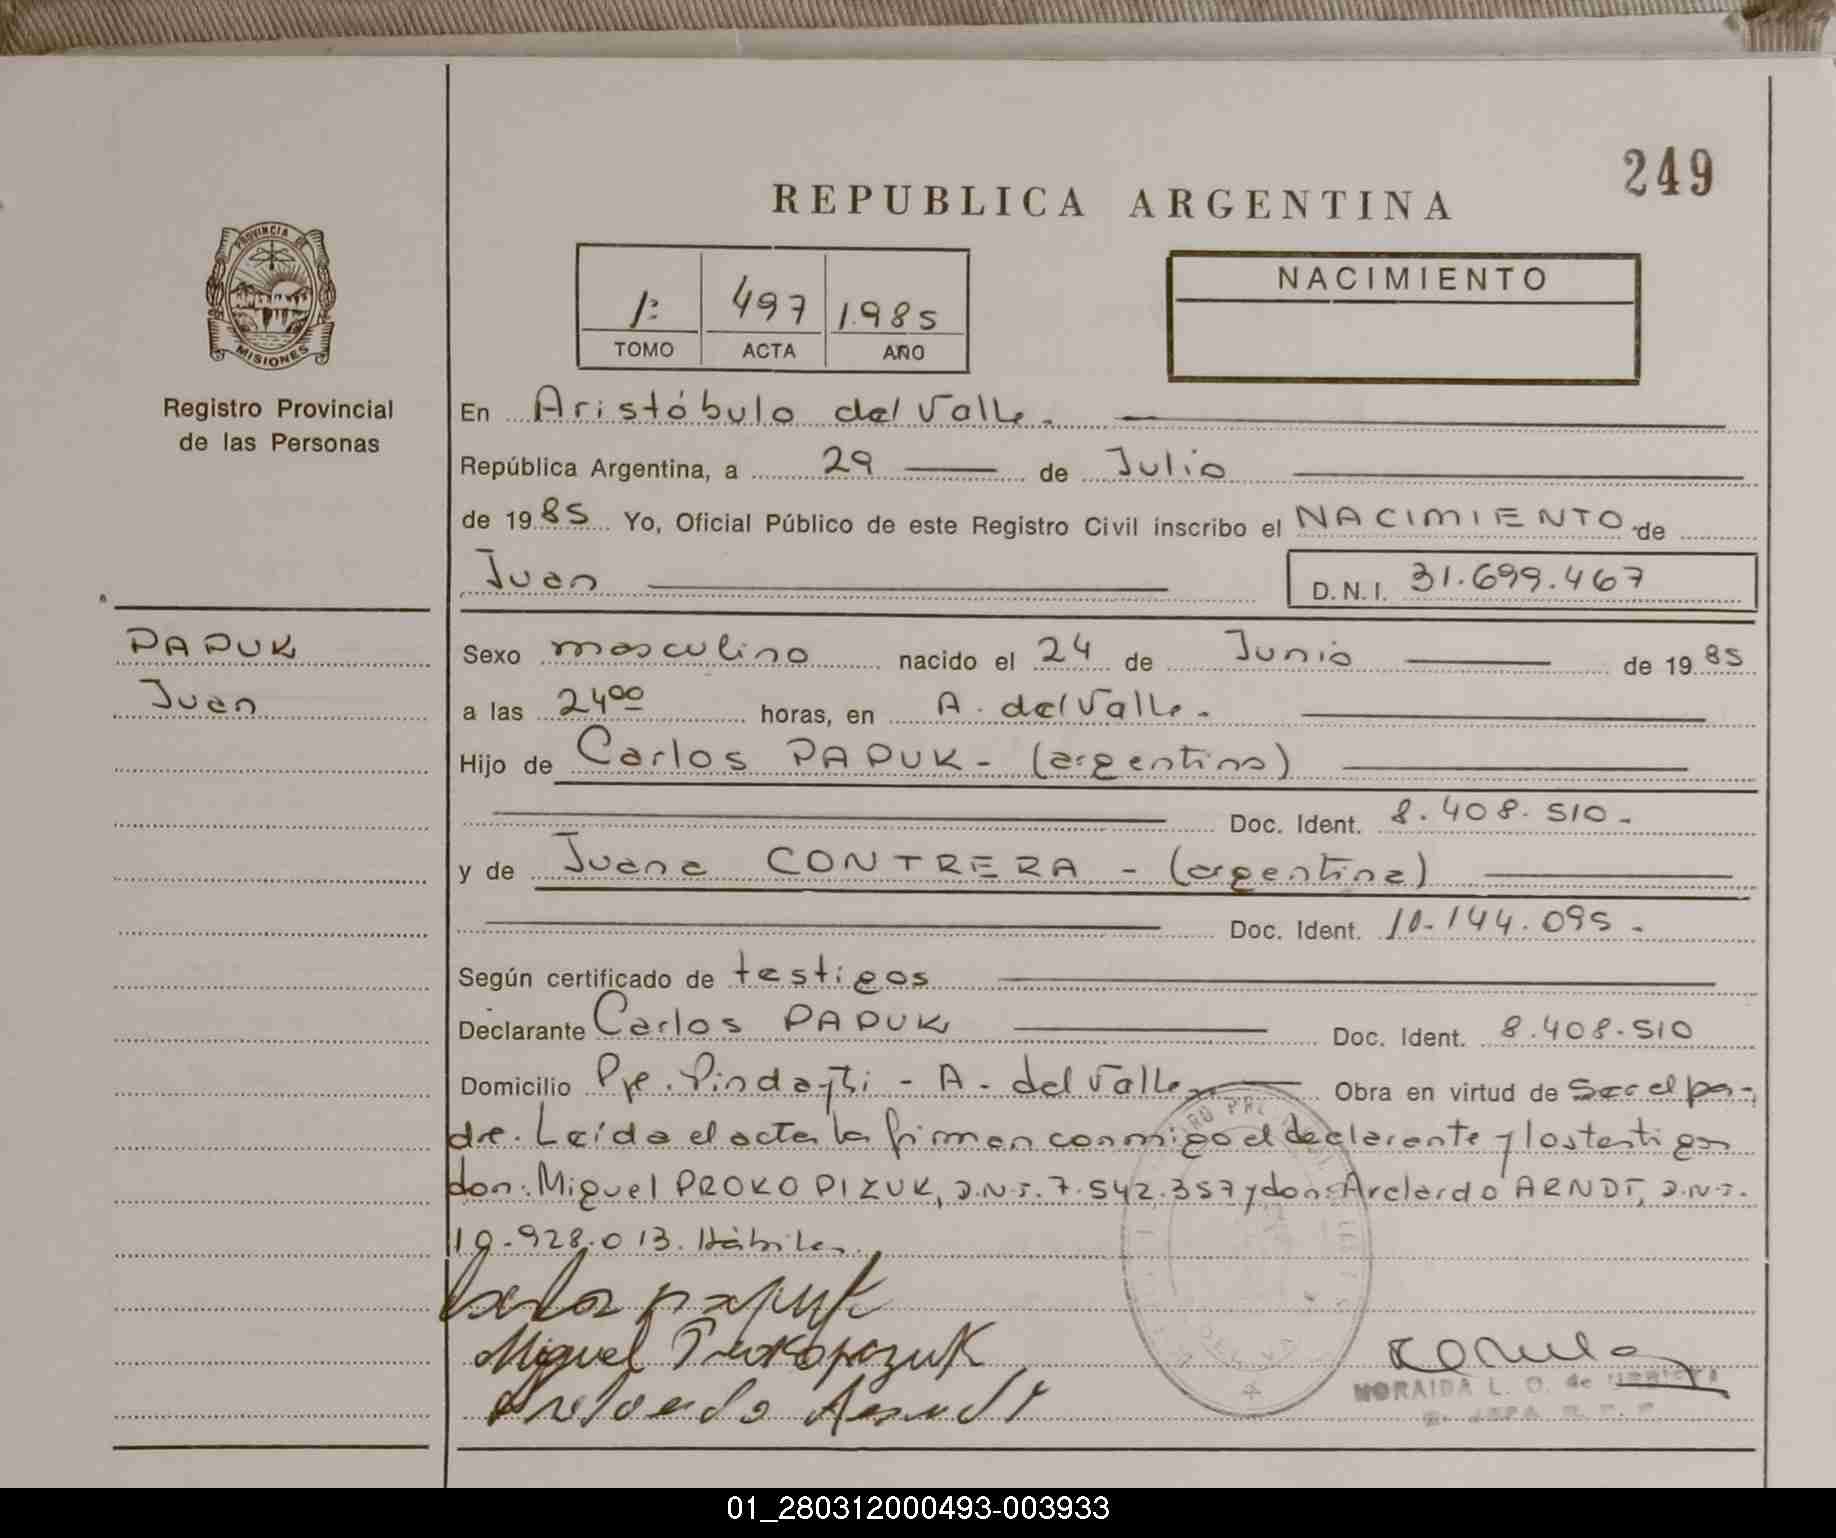 249
REPUBLICA ARGENTINA
PROVINCIA DE
MISIONES
Registro Provincial
de las Personas
1º 497 1.985
TOMO ACTA AÑO
NACIMIENTO
En Aristóbulo del Valle.
República Argentina, a 29 de Julio
de 1985 Yo, Oficial Público de este Registro Civil inscribo el NACIMIENTO de
Juan D.N.I. 31.699.467
PAPUK
Juan
Sexo masculino nacido el 24 de Junio de 1985
a las 2400 horas, en A. del Valle.
Hijo de Carlos PAPUK - (argentino)
Doc. Ident. 8.408.510.
y de Juana CONTRERA - (argentina)
Doc. Ident. 10.144.095.
Según certificado de testigos
Declarante Carlos PAPUK Doc. Ident. 8.408.510
Domicilio - A. del Valle Obra en virtud de Ser el pa-
dre. Leída el acta la firman conmigo el declarante y los testigos
don: Miguel PROKOPIZUK, D.N.I. 7.542.357 y don: Arelardo ARNDT, D.N.I.
10.928.013. Hábiles.
Carlos papuk
Miguel Prokopczuk
Arelardo Arndt
MORAIDA L. O. de